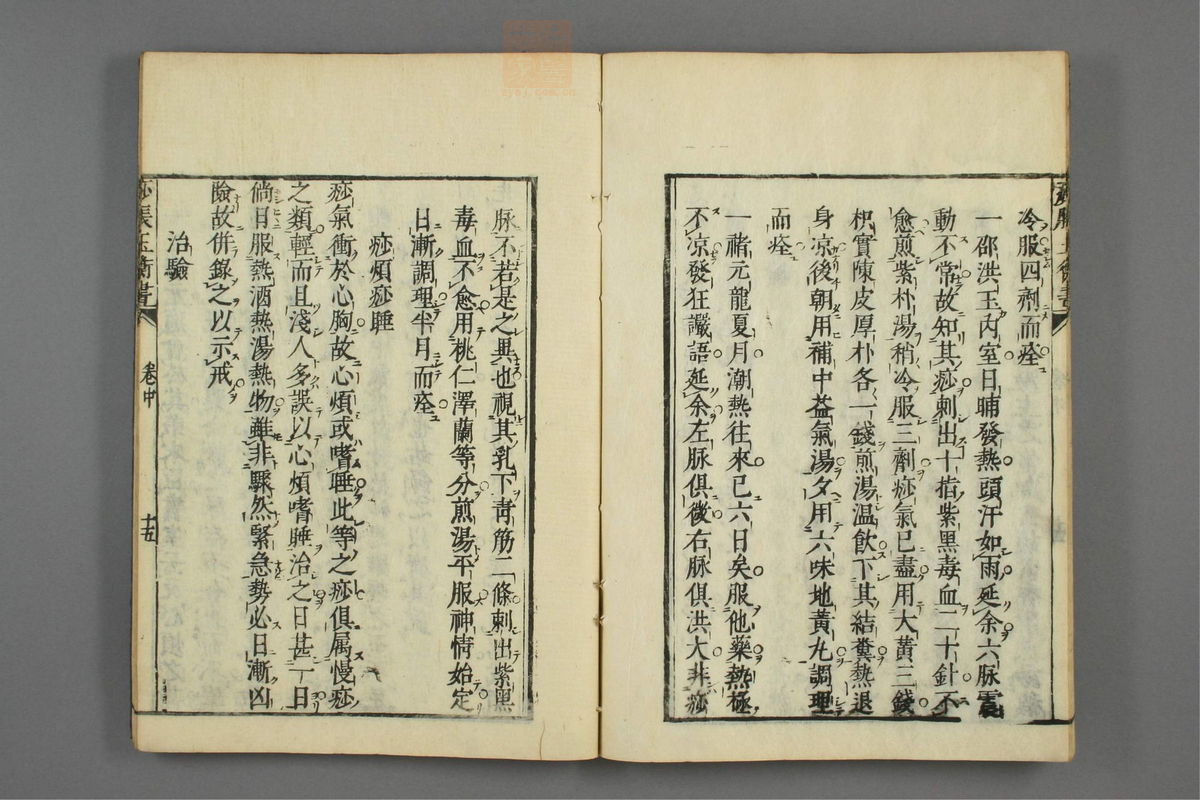 冷服四劑而痊
一邵洪玉內室日晡發熱頭汗如雨延余六脉震
動不常故知其痧刺出十指紫黑毒血二十針不
愈煎紫朴湯稍冷服三劑痧氣已盡用大黃三錢
枳實陳皮厚朴各一錢煎湯温飲下其結糞熱退
身凉後朝用補中益氣湯夕用六味地黃丸調理
而痊
一褚元龍夏月潮熱往來已六日矣服他藥熱極
不凉發狂讖語延余左脉俱微右脉俱洪大非痧
脉不若是之異也視其乳下青筋二條刺出紫黑
毒血不愈用桃仁澤蘭等分煎湯平服神情始定
日漸調理半月而痊
痧煩痧睡
痧氣衝於心胸故心煩或嗜睡此等之痧俱属慢痧
之類輕而且淺人多誤以心煩嗜睡治之日甚一日
倘日服熱酒熱湯熱物雖非驟然緊急勢必日漸凶
險故併錄之以示戒
治驗
痧脹玉衡書
卷中
十五